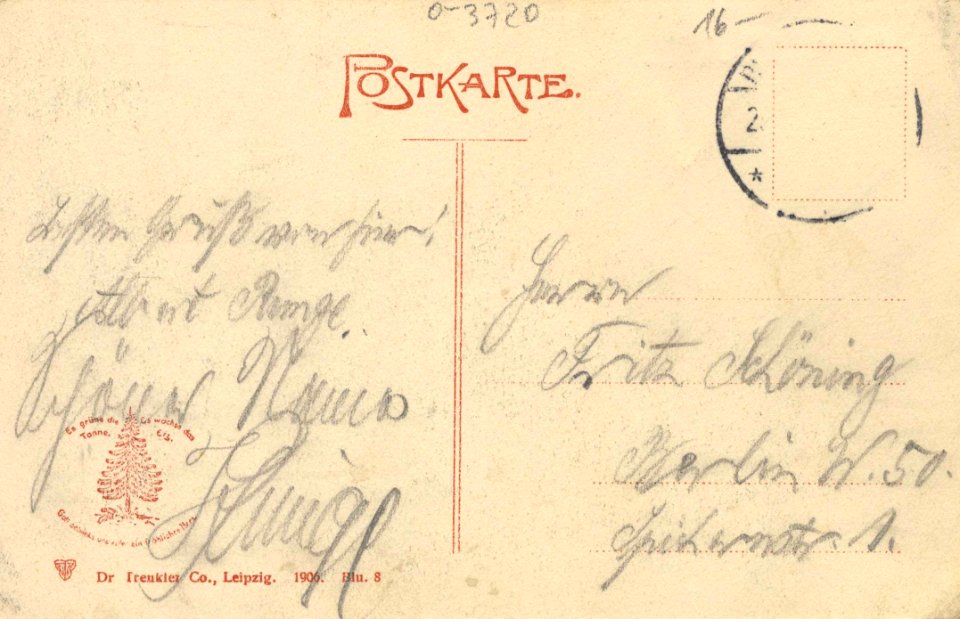 0-3720
16-
POSTKARTE.
2.
Besten Gruß von hier!
Albert Runge.
Schöner Name
Herrn
Fritz Schöning
Berlin W. 50.
Spichernstr. 1.
Es grüne die Tanne,
Es wachse das Erz.
Gott schenke uns alle ein fröhliches Herz
Dr Trenkler Co., Leipzig. 1906. Blu. 8